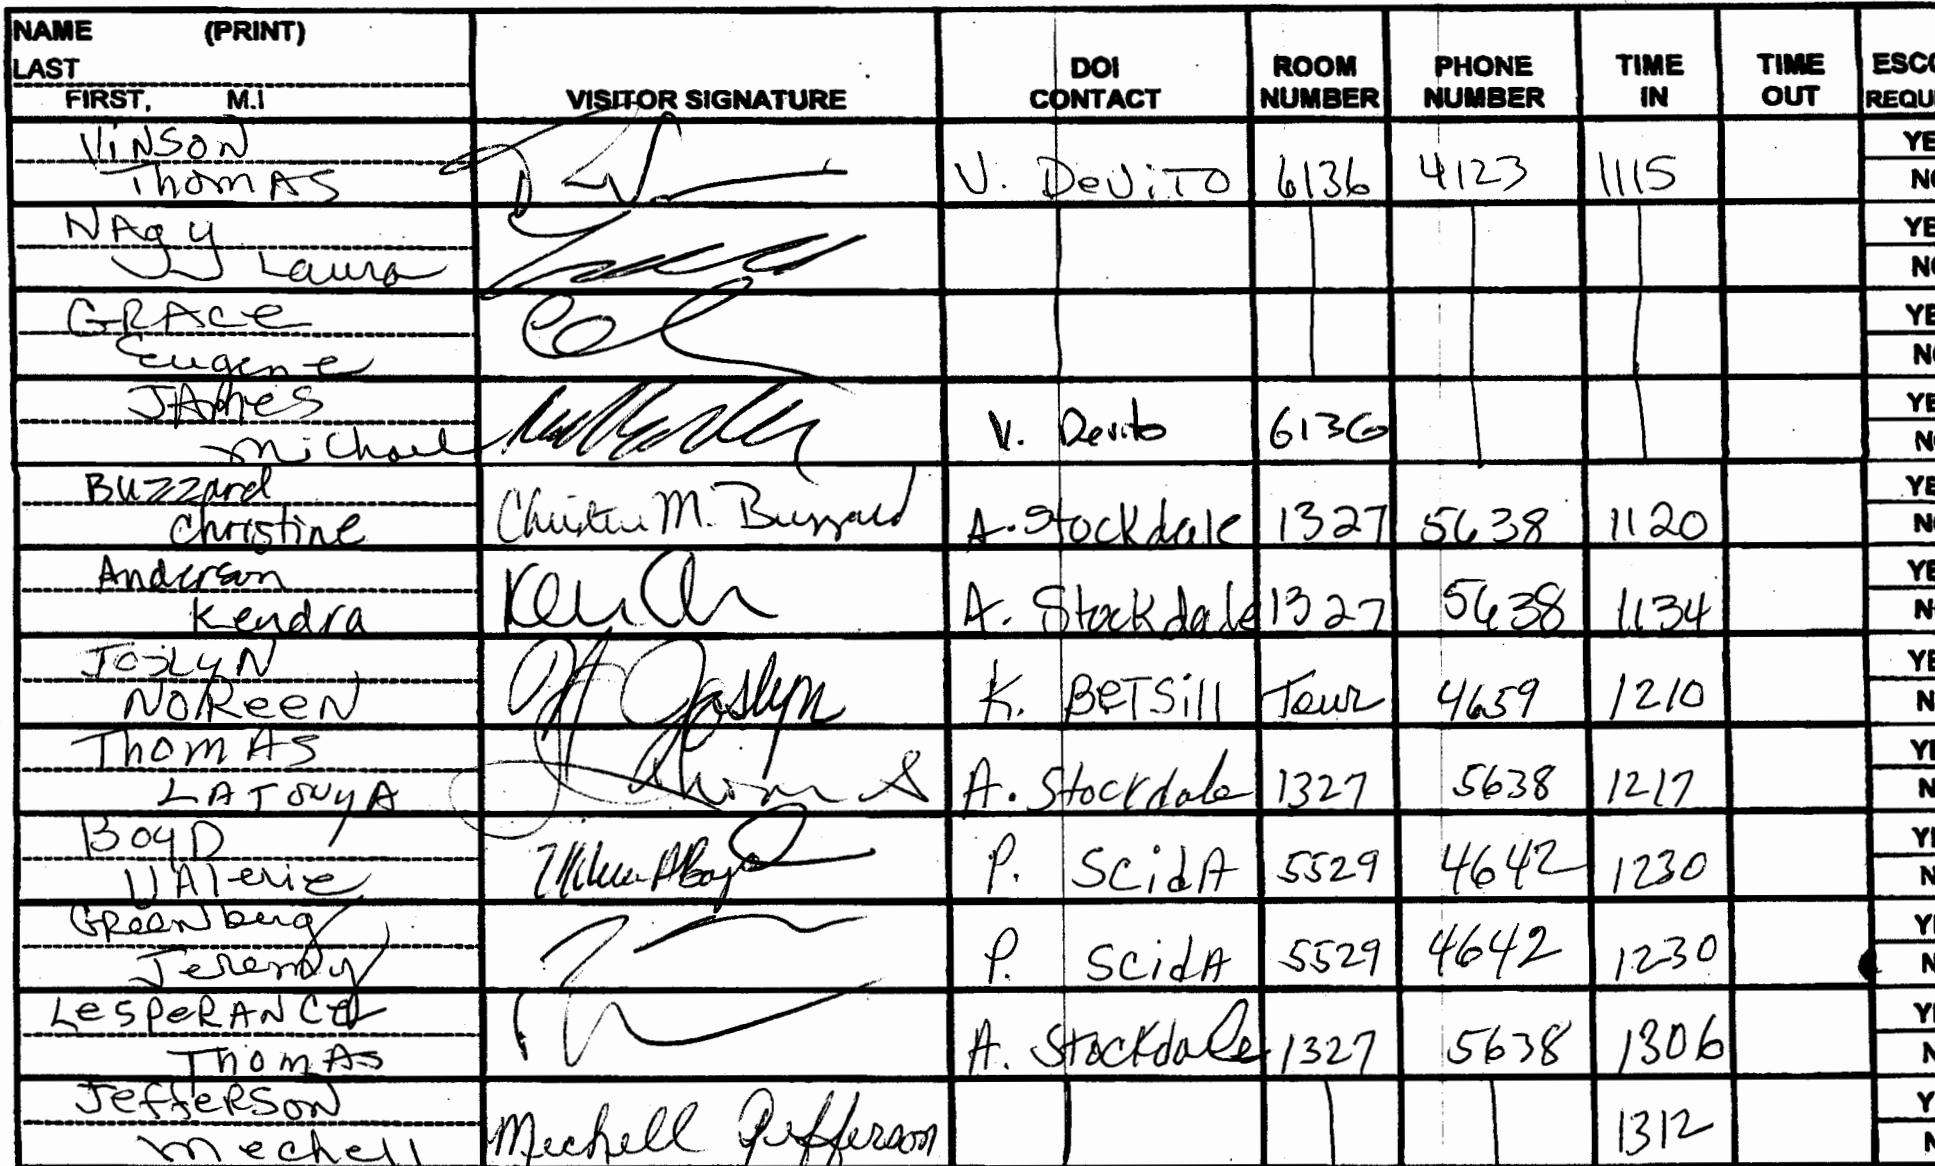 NAME (PRINT)
LAST
FIRST, M.I
VISITOR SIGNATURE
DOI
CONTACT
ROOM
NUMBER
PHONE
NUMBER
TIME
IN
TIME
OUT
ESCO
REQU
VINSON
Thomas V. DeViTO 6136 4123 1115 YE NO
NAgy
Laura YE NO
GRACe
Eugene YE NO
JAMes
Michael V. Devito 6136 YE NO
Buzzard
Christine Christine M. Buzzard A. Stockdale 1327 5638 1120 YE NO
Anderson
Kendra A. Stockdale 1327 5638 1134 YE N
JOSLYN
NOReeN Joslyn K. BETSill Tour 4659 1210 YE N
ThomAS
LATONYA Thomas A. Stockdale 1327 5638 1217 YE N
BoyD
VAlerie P. SCidA 5529 4642 1230 YE N
GReenberg
Jeremy P. SCidA 5529 4642 1230 YE N
LeSPeRANCe
ThomAs A. Stockdale 1327 5638 1306 YE N
JeffeRSoN
mechell Mechell Jefferson 1312 Y N